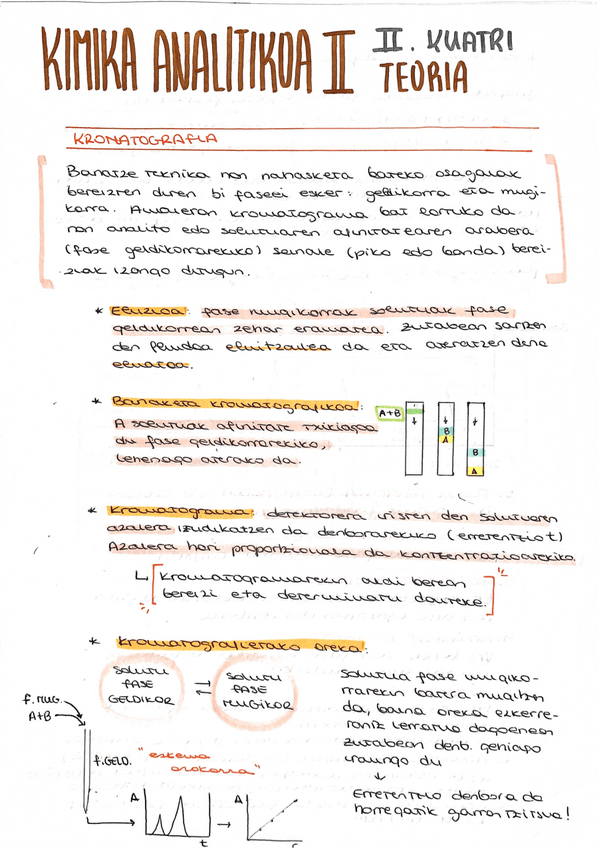 KIMIKA ANALITIKOA II II. KUATRI
TEORIA
KROMATOGRAFIA
Banatze teknika non nahasketa bateko osagaiak
bereizten diren bi faseei esker: geldikorra eta mugi-
korra. Amaieran kromatograma bat lortuko da
non analito edo solutuaren afinitatearen arabera
(fase geldikorrarekiko) seinale (piko edo banda) berei-
ziak izango ditugun.
* Eluzioa: fase mugikorrak solutuak fase
geldikorrean zehar eramatea. Zutabean sartzen
den fluidoa eluitzailea da eta ateratzen dena
eluatoa.
* Banaketa kromatografikoa:
A solutuak afinitate txikiagoa
du fase geldikorrarekiko,
lehenago aterako da.
A+B
B
A
B
A
* Kromatograma: detektorera iristen den solutuaren
azalera irudikatzen da denborarekiko (erretentzio t)
Azalera hori proportzionala da kontzentrazioarekiko.
Kromatogramarekin aldi berean
bereizi eta determinatu daiteke.
* Kromatografietako oreka:
SOLUTU
FASE
GELDIKOR
SOLUTU
FASE
MUGIKOR
Solutua fase mugiko-
rrarekin batera mugitzen
da, baina oreka ezkerre-
rantz lerratua dagoenean
zutabean denb. gehiago
iraungo du
Erretentzio denbora da
horregatik garrantzitsua!
f. MUG.
A+B
f. GELD.
"eskema
orokorra"
A
t
A
c